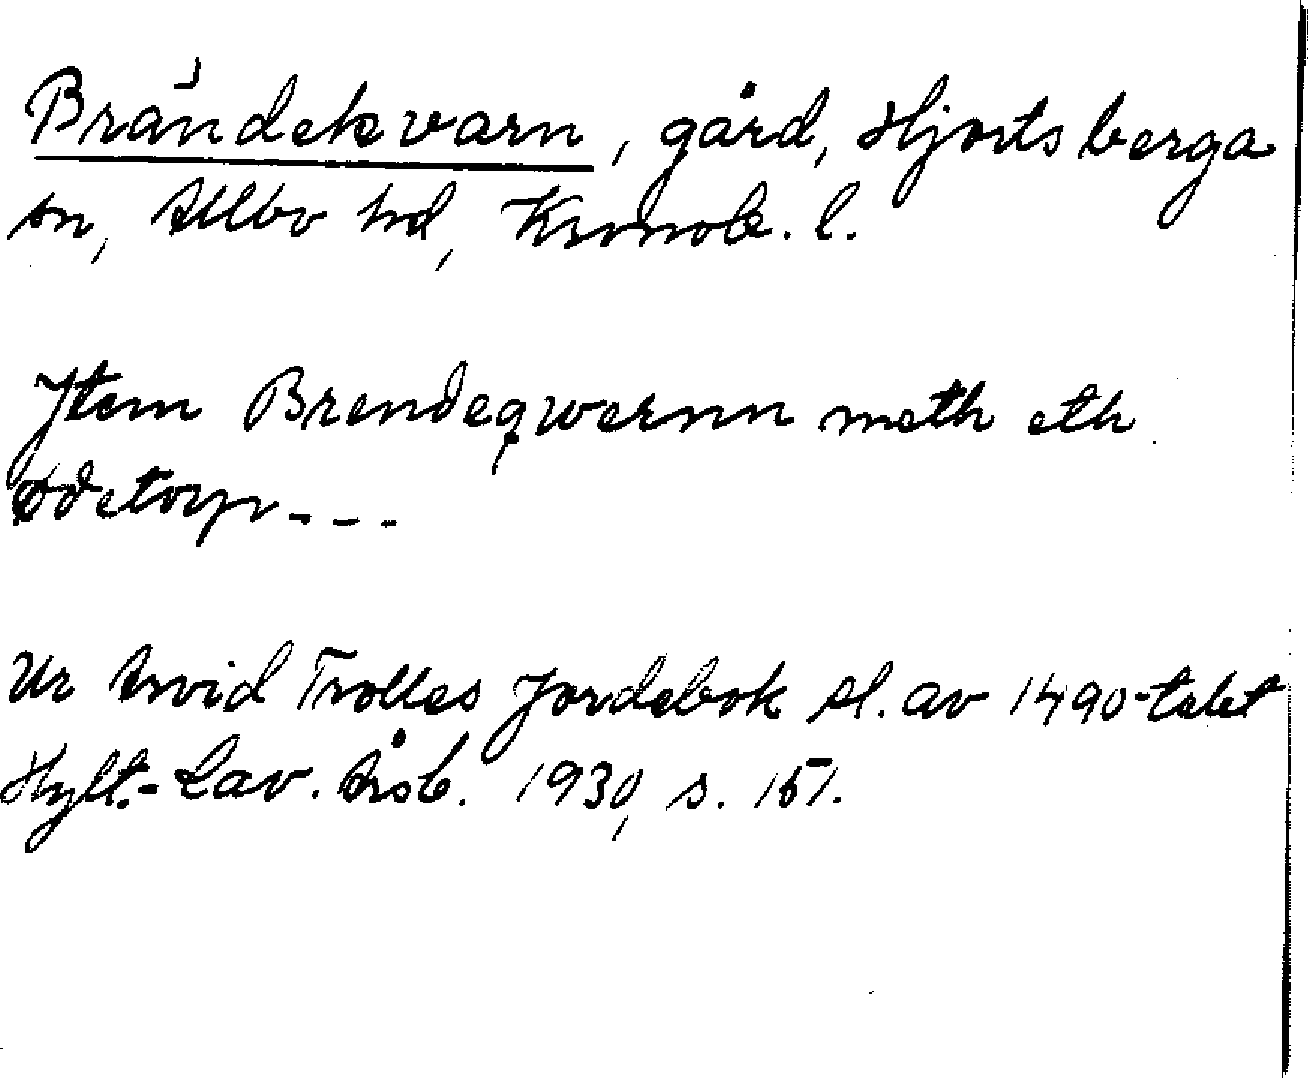 Brändekvarn, gård, Hjortsberga
sn, Allbo hd, Kronob. l.
Jtem Brendeqwernn meth eth
ødetorp---
Ur Arvid Trolles Jordebok sl. av 1490-talet
Hylt.-Cav. Årsb. 1930, s. 151.